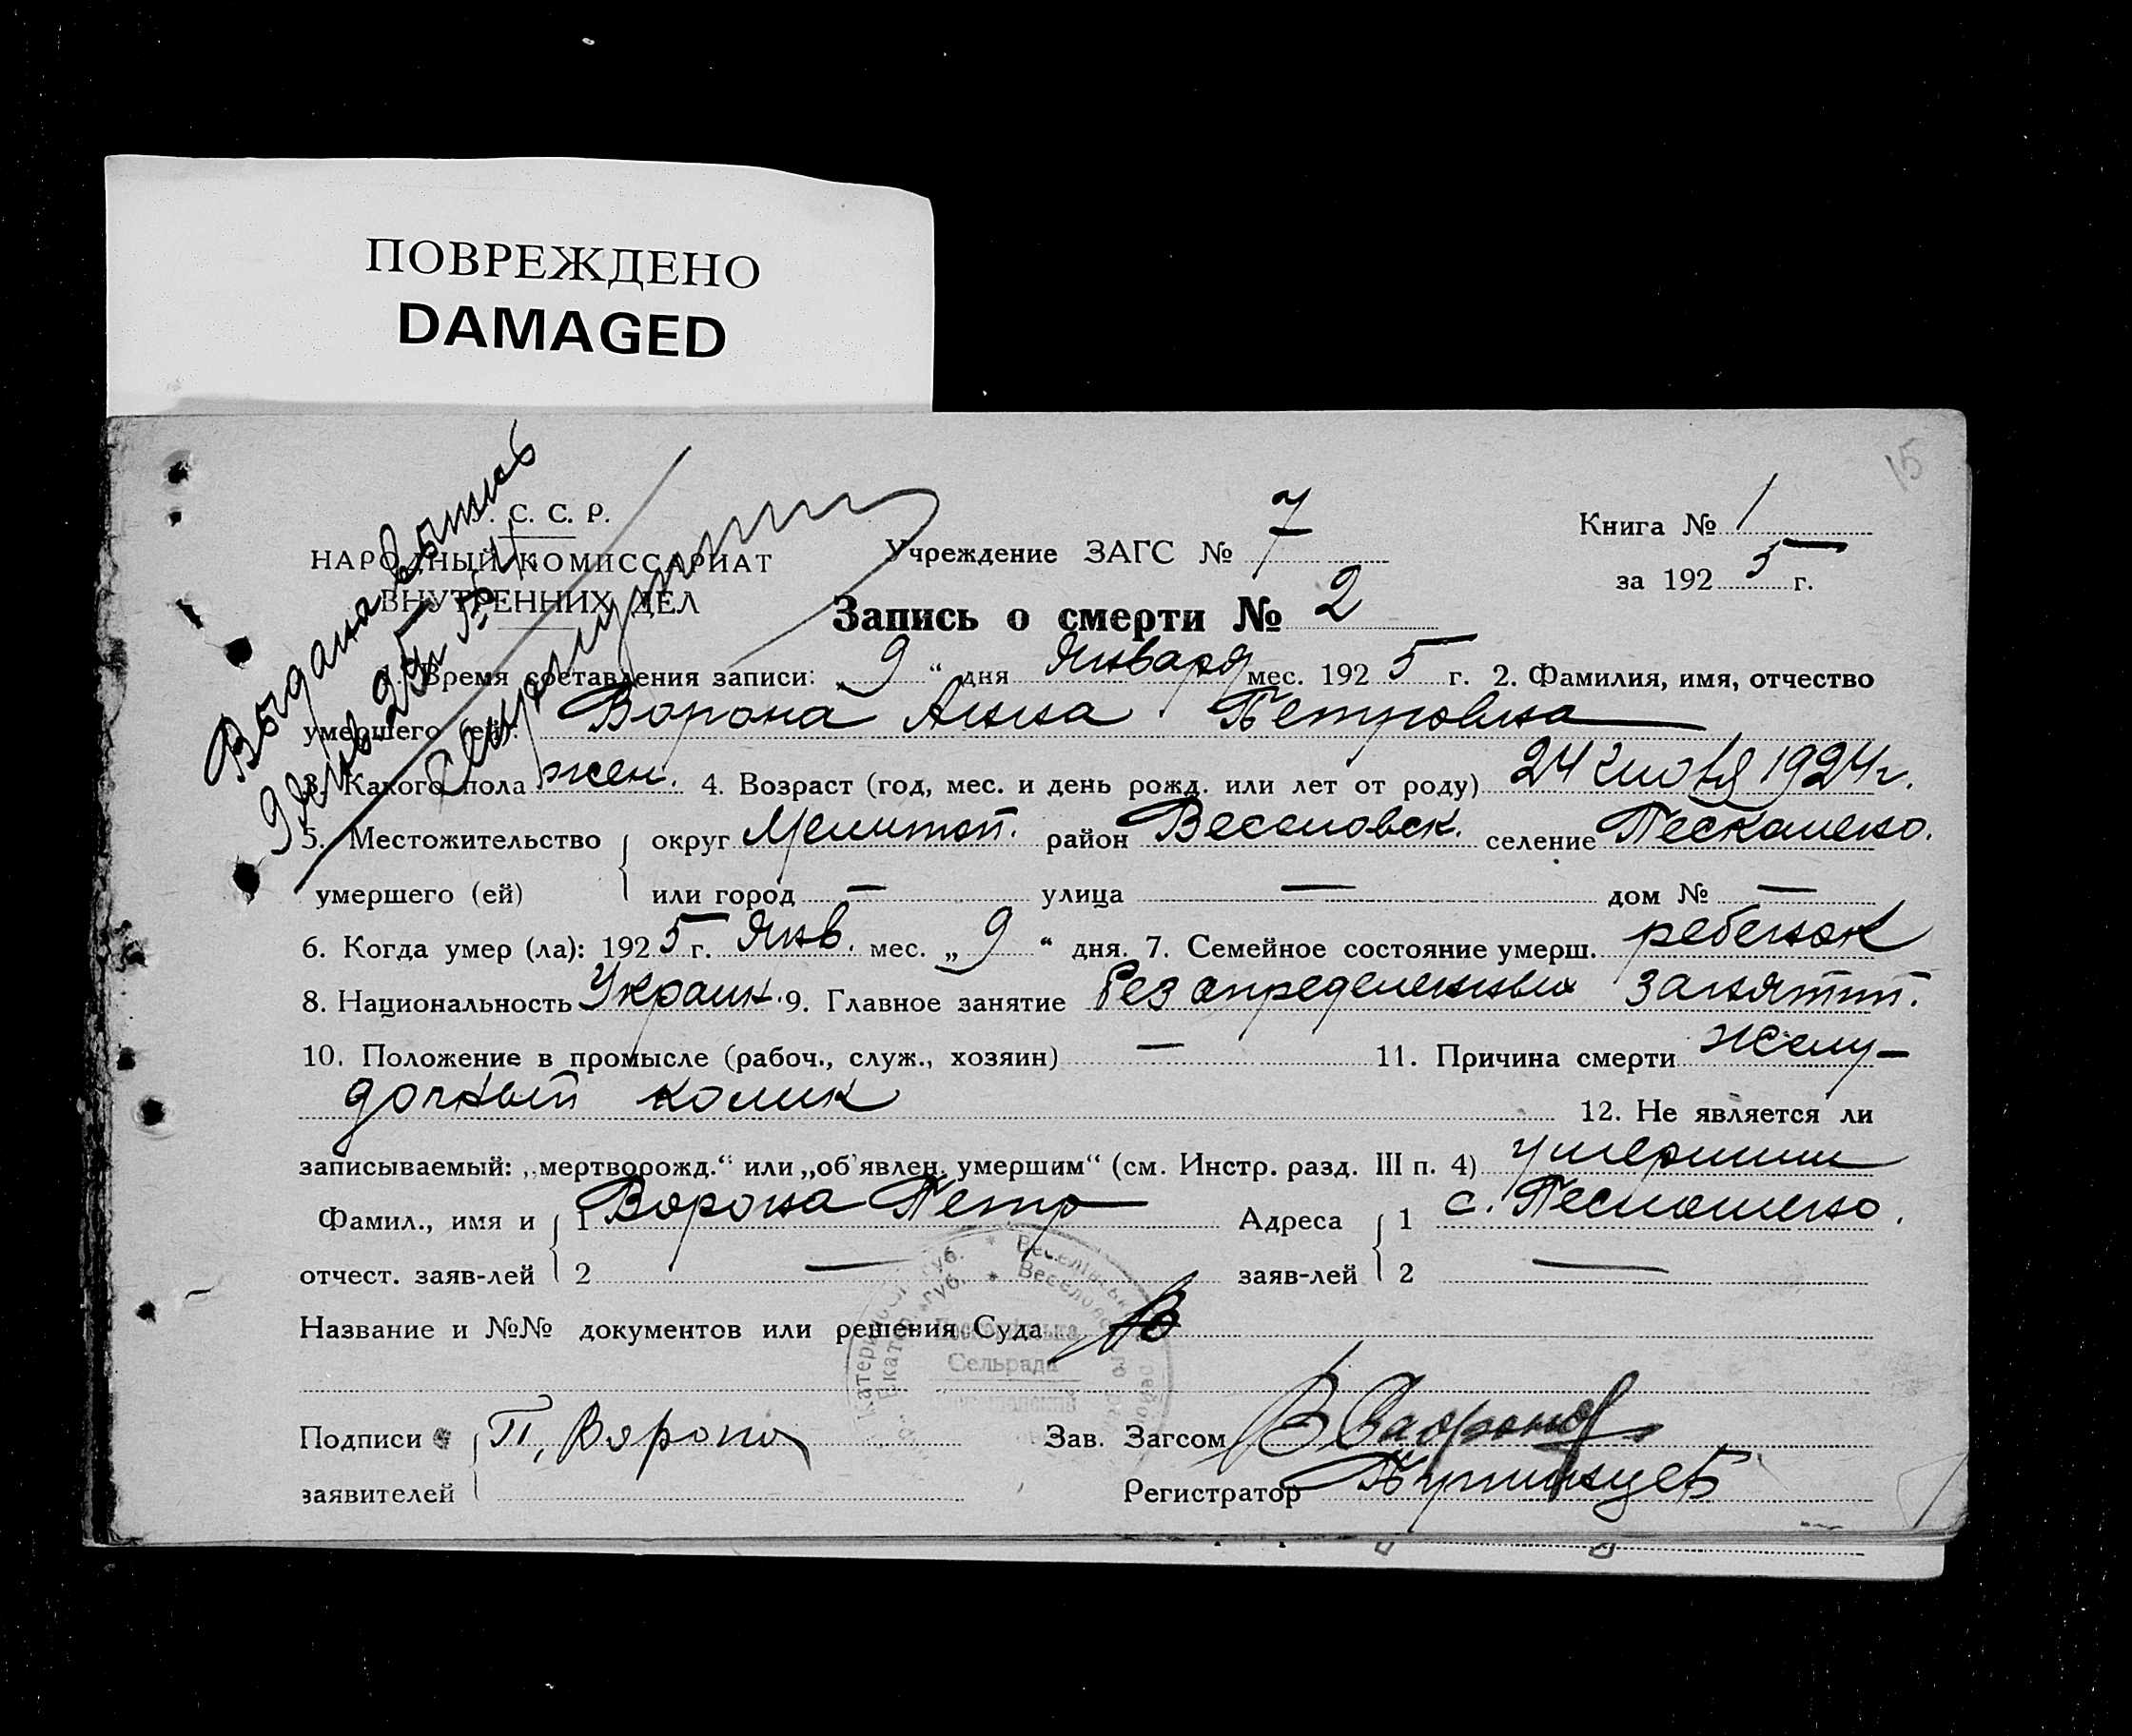 ПОВРЕЖДЕНО
DAMAGED
15
Выдана выпись
9 янв 25 г. №
С. С. Р.
НАРОДНЫЙ КОМИССАРИАТ
ВНУТРЕННИХ ДЕЛ
Учреждение ЗАГС № 7
Книга № 1
за 1925 г.
Запись о смерти № 2
Время составления записи: „9“ дня Января мес. 1925 г. 2. Фамилия, имя, отчество
умершего (ей): Ворона Анна Петровна
3. Какого пола жен. 4. Возраст (год, мес. и день рожд. или лет от роду) 24 июля 1924 г.
5. Местожительство { округ Мелитоп. район Веселовск. селение
умершего (ей) или город — улица — дом № —
6. Когда умер (ла): 1925 г. Янв. мес. „9“ дня. 7. Семейное состояние умерш. ребенок
8. Национальность Украин. 9. Главное занятие без определенных занятт.
10. Положение в промысле (рабоч., служ., хозяин) — 11. Причина смерти желу-
дочный колик 12. Не является ли
записываемый: „мертворожд.“ или „об'явлен. умершим“ (см. Инстр. разд. III п. 4) умершим
Фамил., имя и { 1 Ворона Петр Адреса { 1 с.
отчест. заяв-лей 2 — заяв-лей 2 —
Название и №№ документов или решения Суда
Сельрада
Подписи { П. Ворона Зав. Загсом
заявителей Регистратор